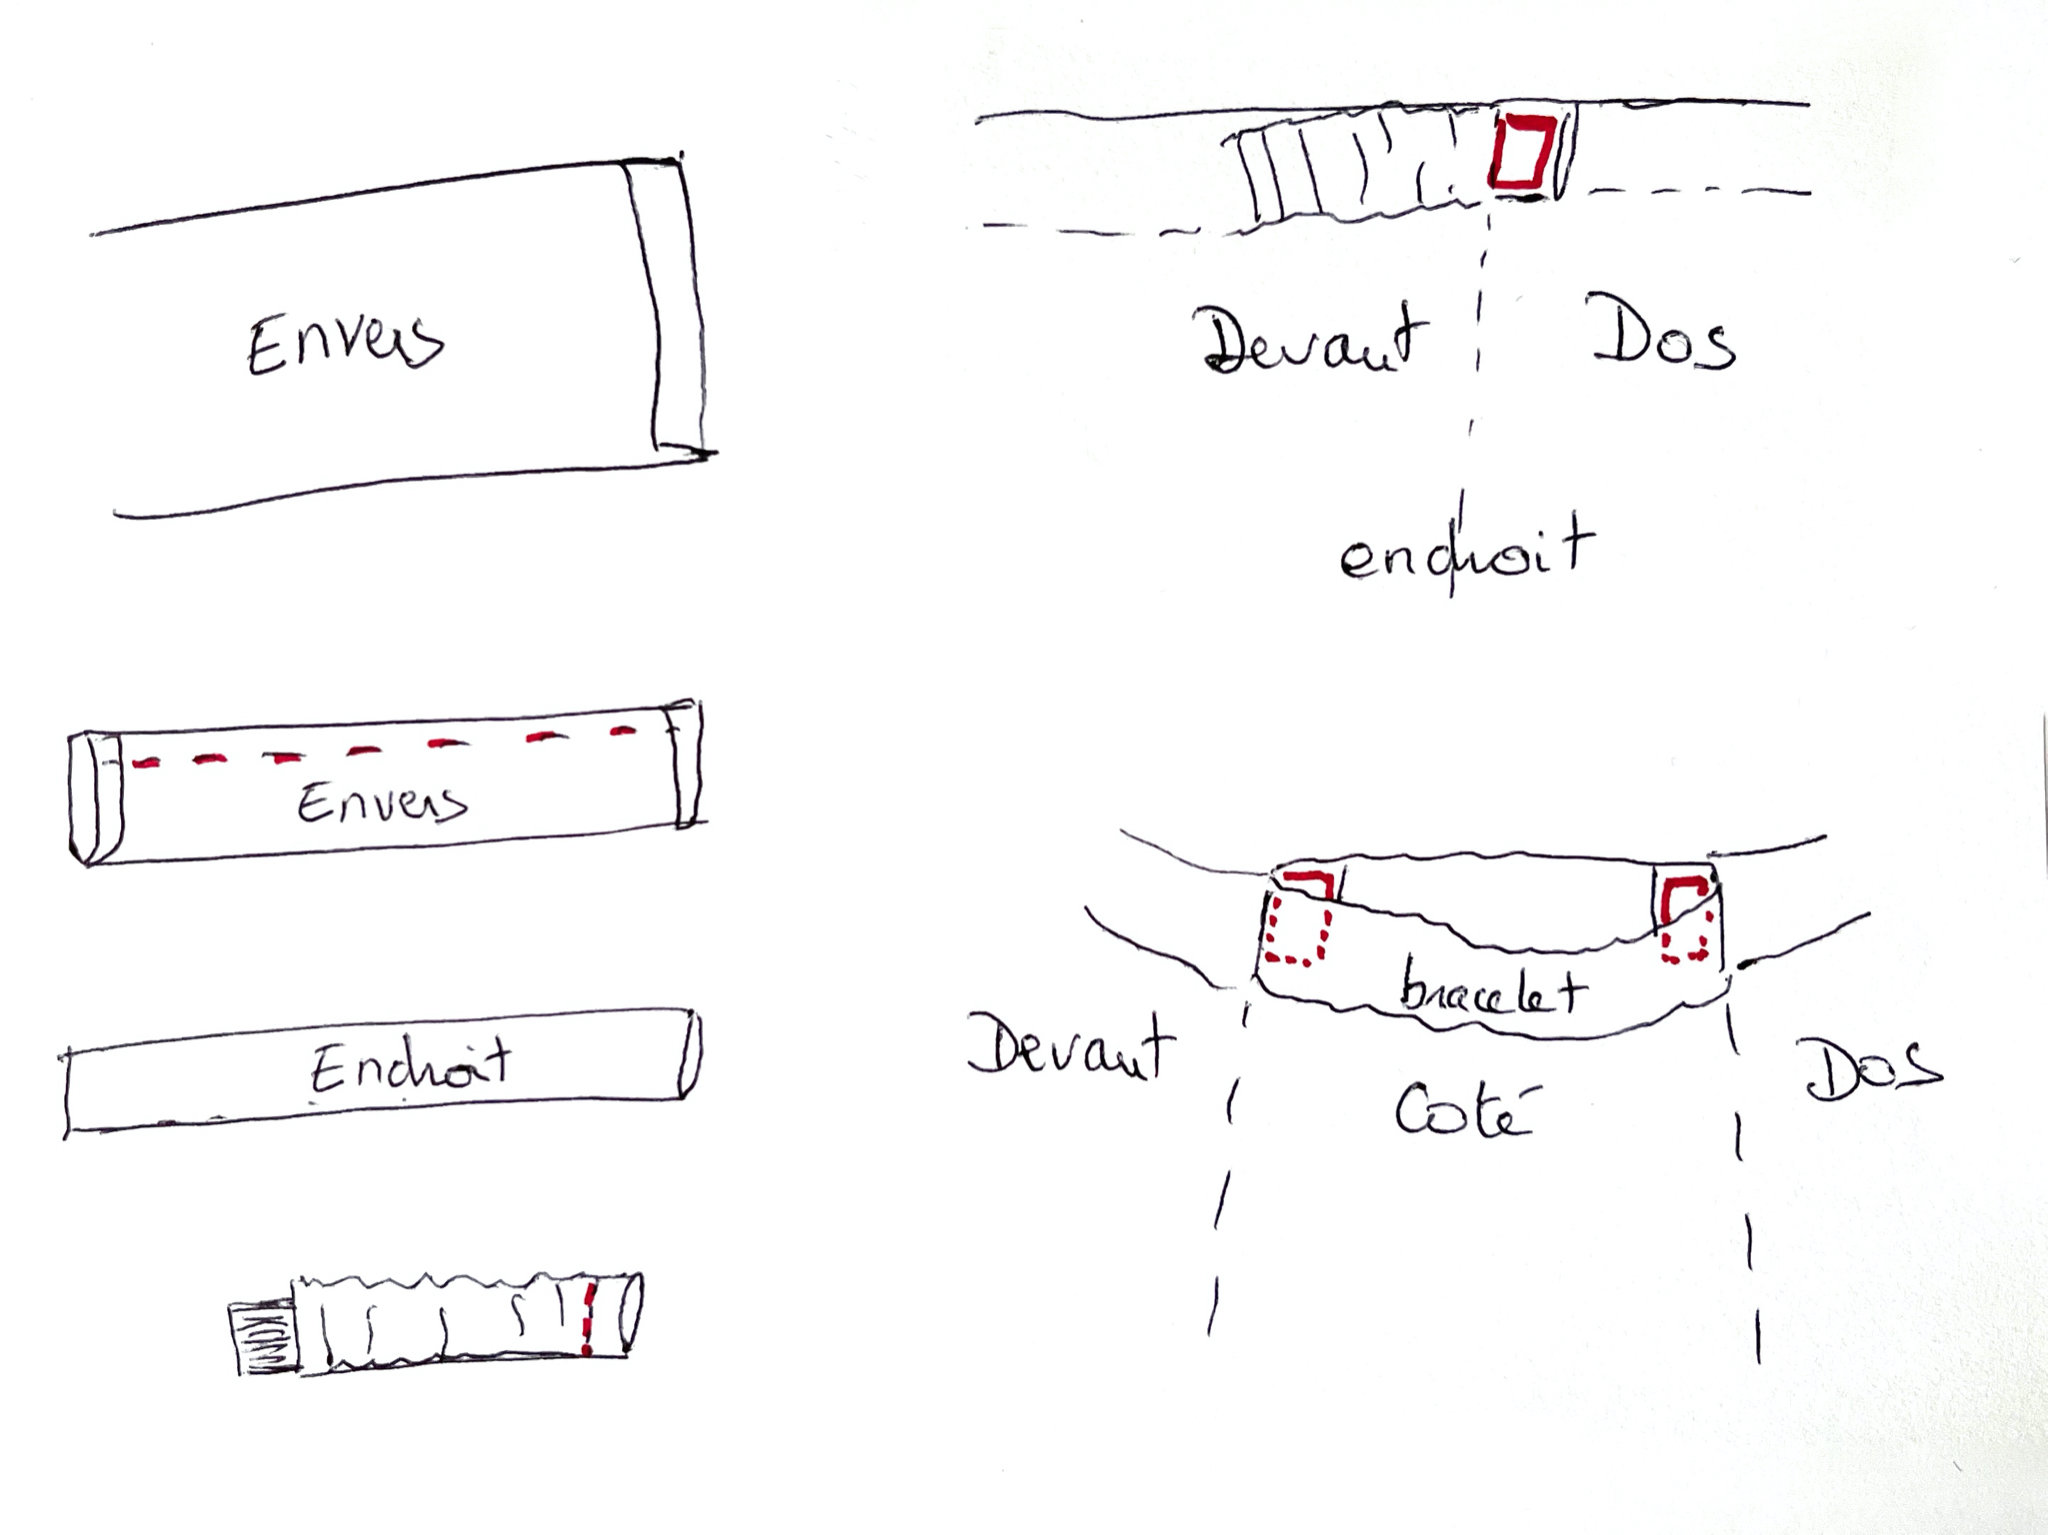 Envers
Envers
Endroit
Devant Dos
endroit
bracelet
Devant Coté Dos